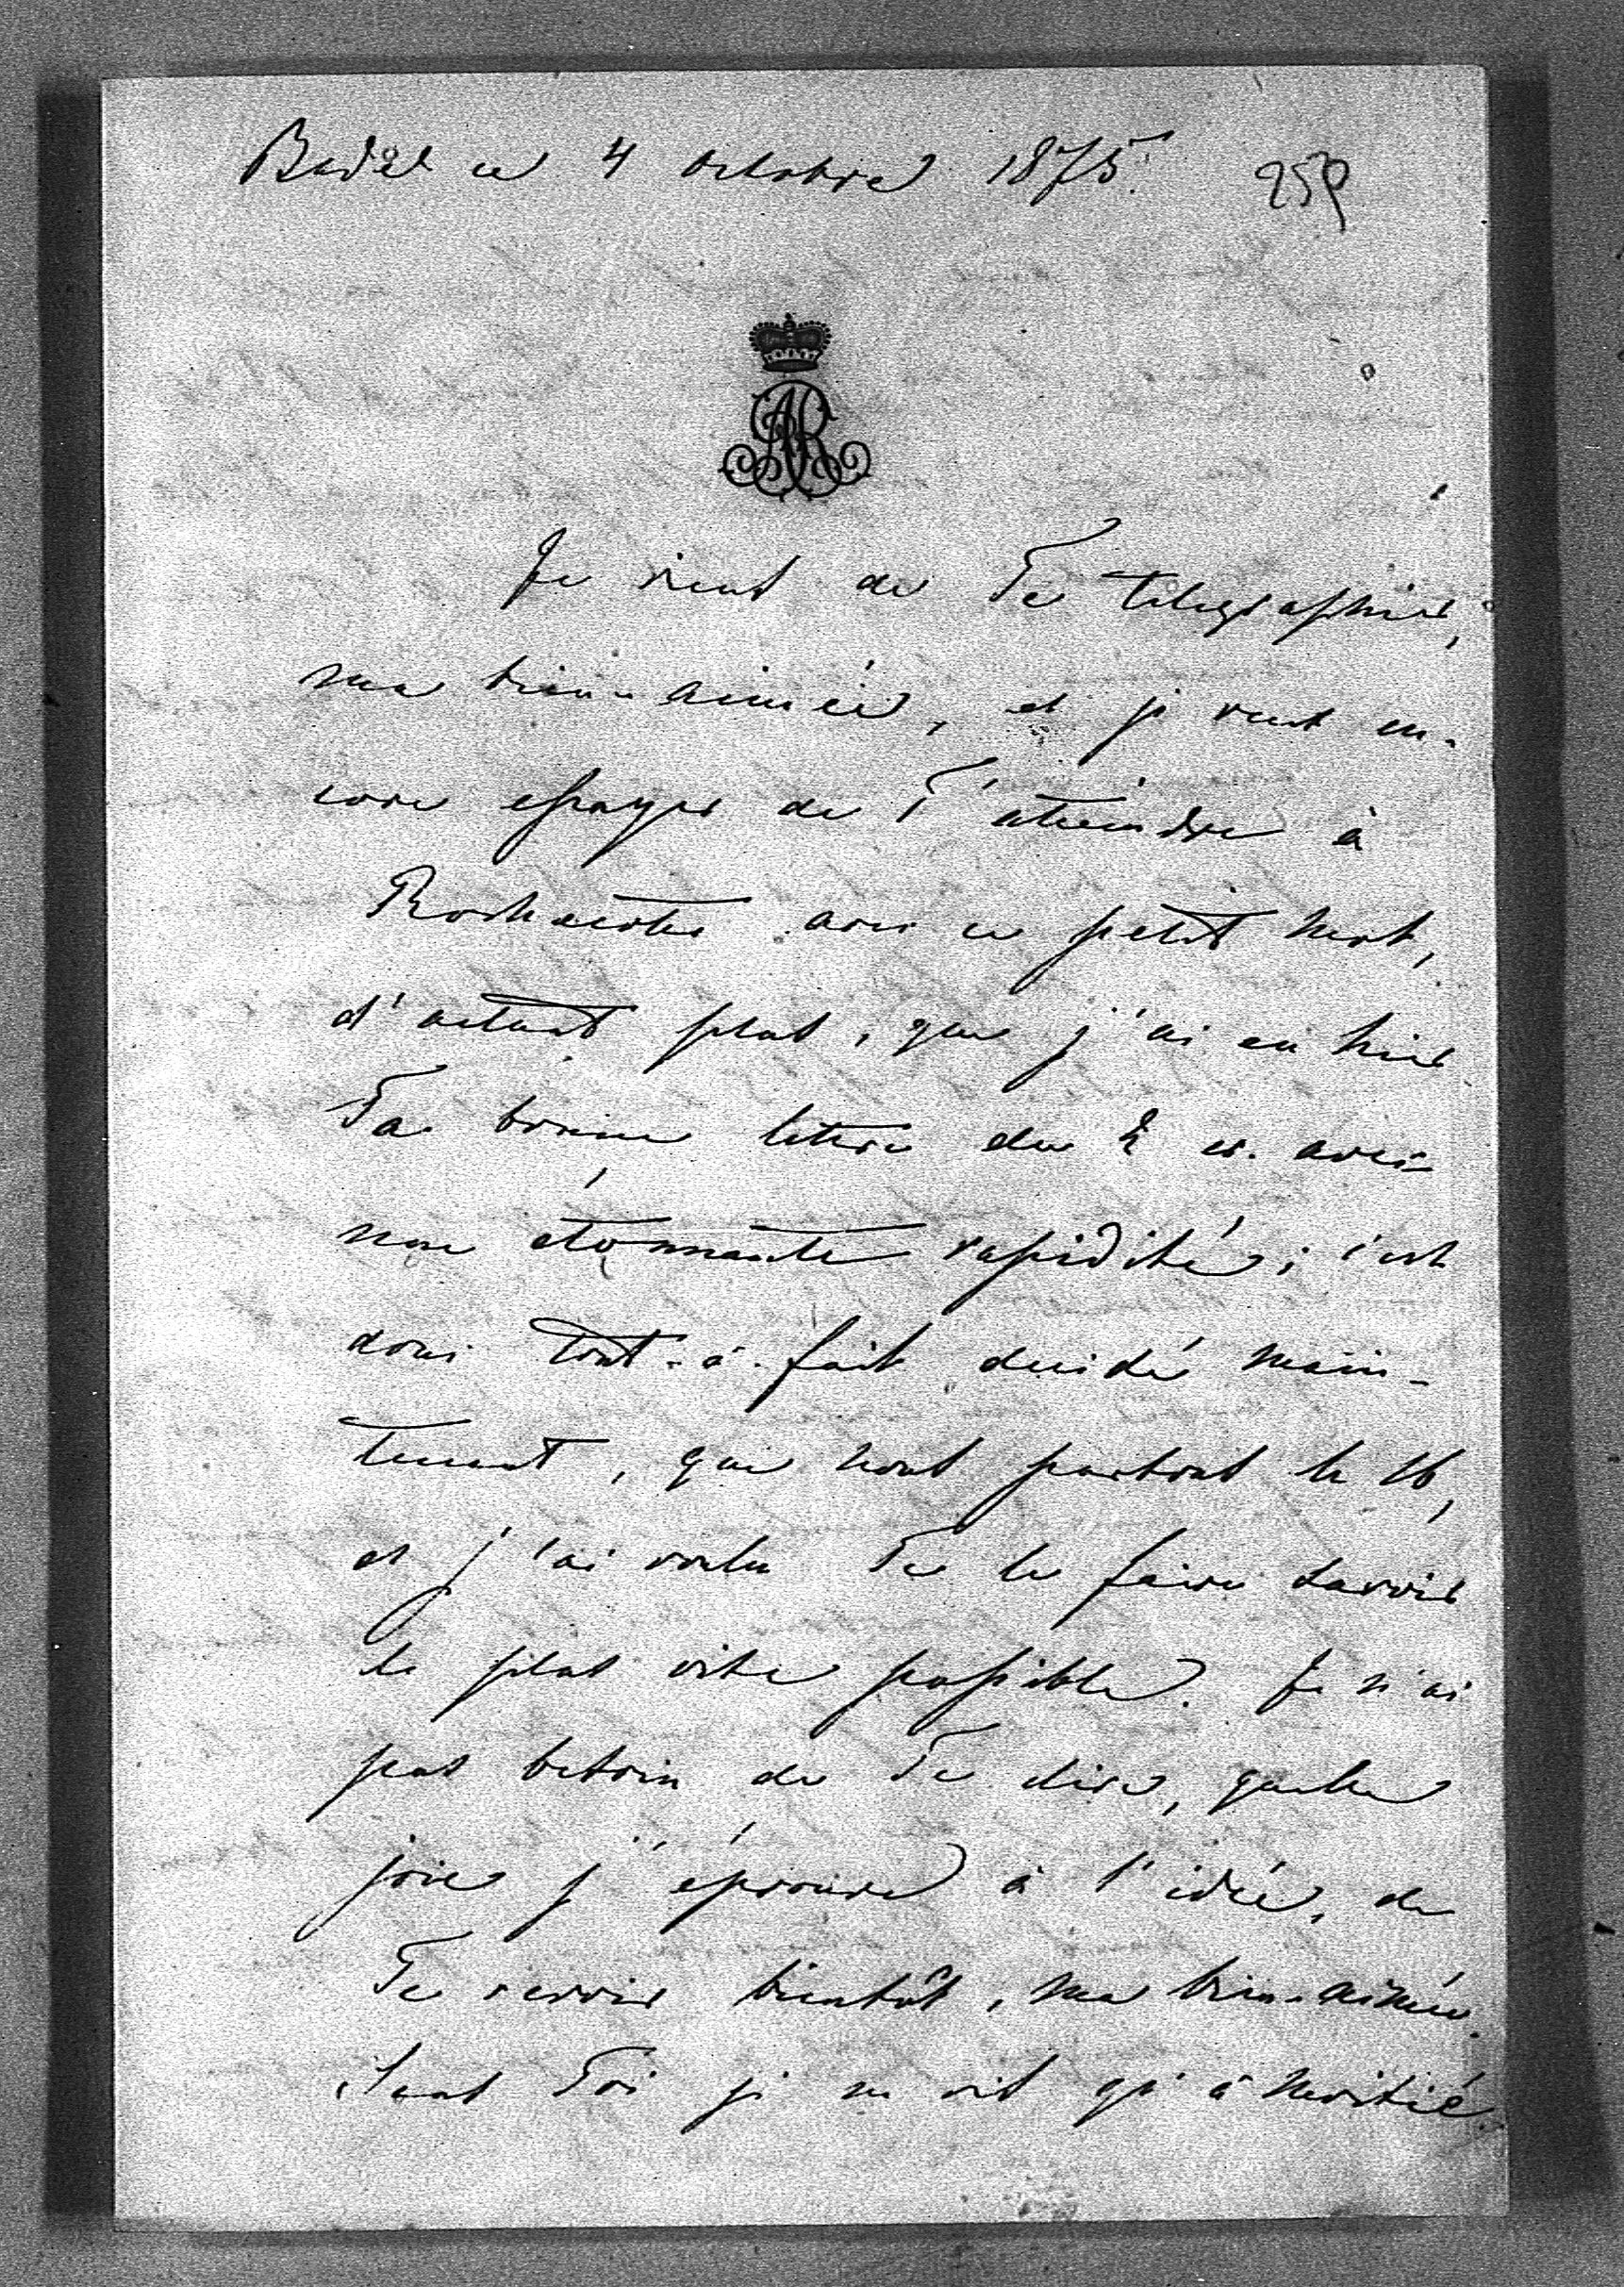 Baden ce 4 octobre 1875.
259
AR
Je viens de Te telegraphier,
ma bien-aimée, et je veux en-
core essayer de T'atteindre à
avec ce petit mot,
d'autant plus, que j'ai eu hier
Ta bonne lettre du 2 cr. avec
une étonnante rapidité; c'est
donc tout-à-fait decidé main-
tenant, que nous partons le 16,
et j'ai voulu Te le faire savoir
le plus vite possible. Je n'ai
pas besoin de Te dire, quelle
joie j'éprouve à l'idée, de
Te revoir bientôt, ma bien-aimée.
Sans Toi je ne vis qu'à moitié.